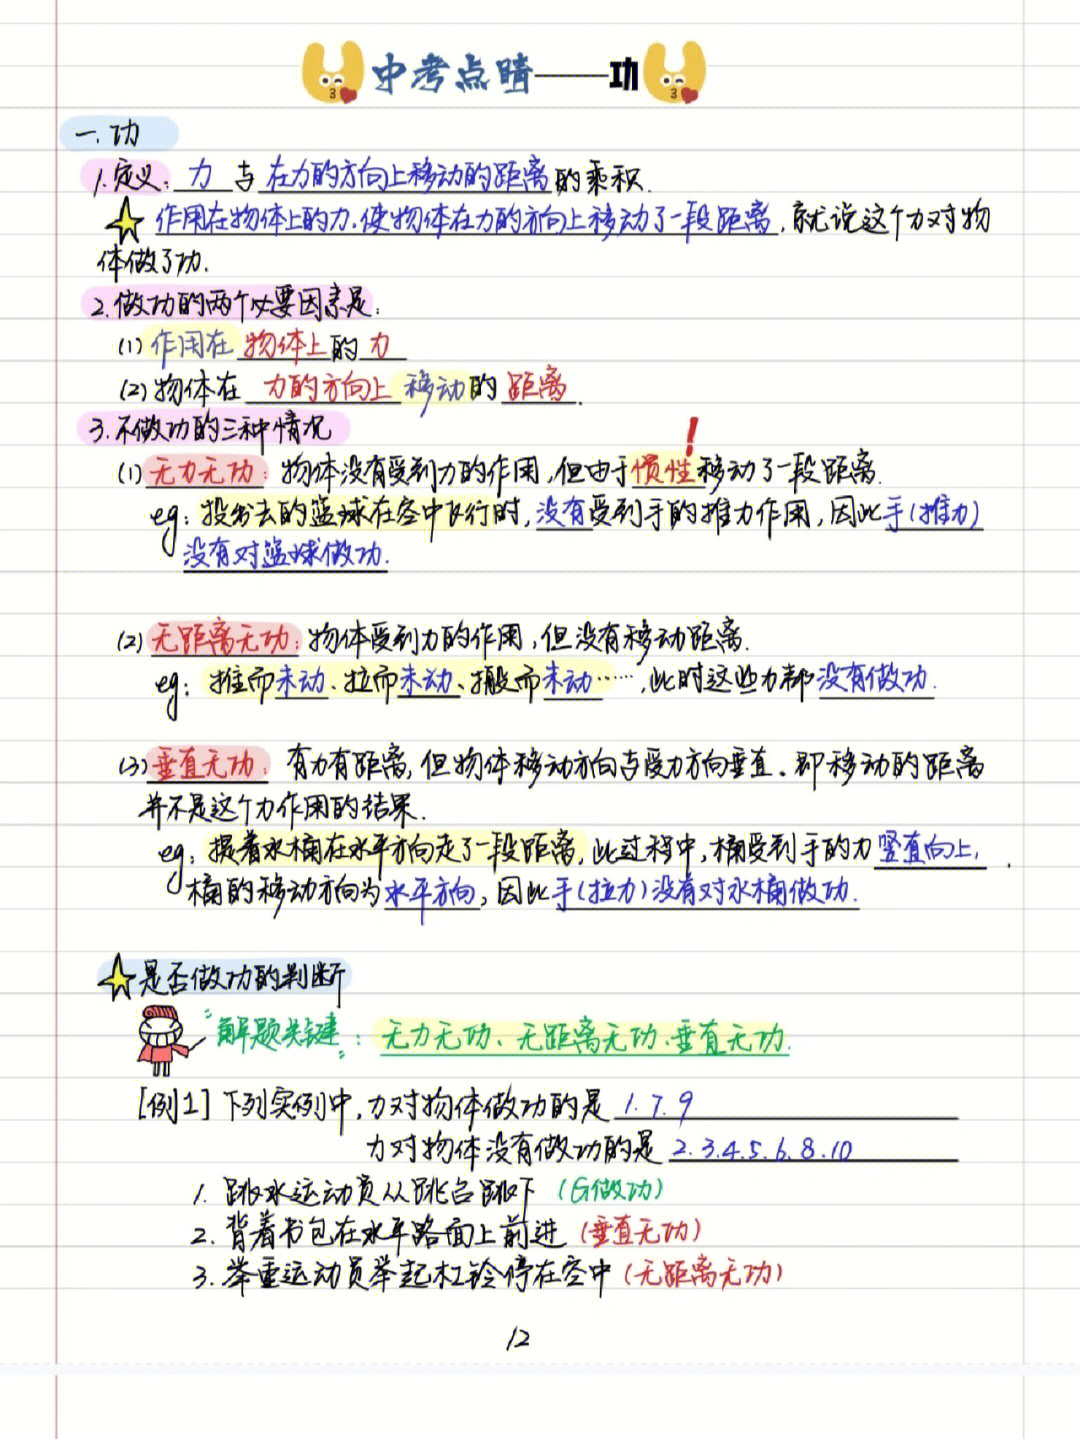 中考点睛——功
一.功
1.定义:力与在力的方向上移动的距离的乘积.
作用在物体上的力,使物体在力的方向上移动了一段距离,就说这个力对物
体做了功.
2.做功的两个必要因素是:
(1)作用在物体上的力
(2)物体在力的方向上移动的距离.
3.不做功的三种情况
(1)无力无功:物体没有受到力的作用,但由于惯性移动了一段距离.
eg:投出去的篮球在空中飞行时,没有受到手的推力作用,因此手(推力)
没有对篮球做功.
(2)无距离无功:物体受到力的作用,但没有移动距离.
eg:推而未动、拉而未动、搬而未动……,此时这些力都没有做功.
(3)垂直无功:有力有距离,但物体移动方向与受力方向垂直、即移动的距离
并不是这个力作用的结果.
eg:提着水桶在水平方向走了一段距离,此过程中,桶受到手的力竖直向上,
桶的移动方向为水平方向,因此手(拉力)没有对水桶做功.
是否做功的判断
"解题关键":无力无功、无距离无功、垂直无功.
[例1]下列实例中,力对物体做功的是 1.7.9
力对物体没有做功的是 2.3.4.5.6.8.10
1.跳水运动员从跳台跳下(G做功)
2.背着书包在水平路面上前进(垂直无功)
3.举重运动员举起杠铃停在空中(无距离无功)
12